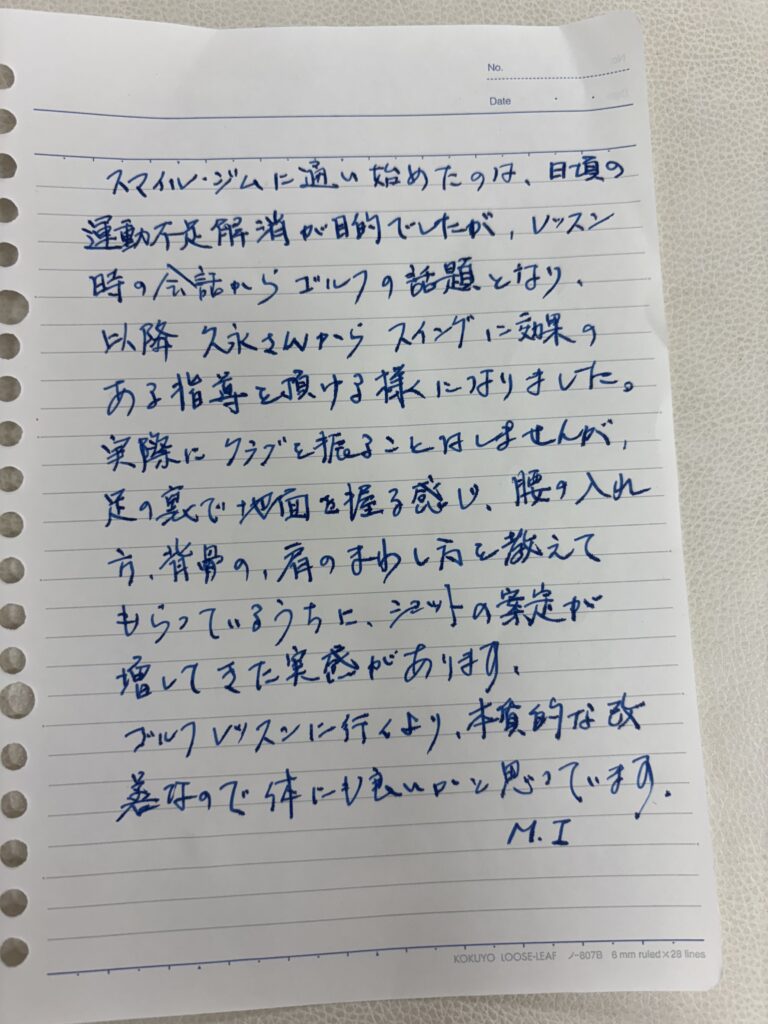 No.
Date
スマイル・ジムに通い始めたのは、日頃の
運動不足解消が目的でしたが、レッスン
時の会話から ゴルフの話題となり、
以降 久永さんから スイングに効果の
ある指導を頂ける様になりました。
実際に クラブを振ることはしませんが、
足の裏で地面を握る感じ、腰の入れ
方、背骨の、肩のまわし方を教えて
もらっているうちに、ショットの安定が
増してきた実感があります。
ゴルフレッスンに行くより、本質的な改
善なので 体にも良いかと思っています。
M.I
KOKUYO LOOSE-LEAF ノ-807B 6 mm ruled×28 lines